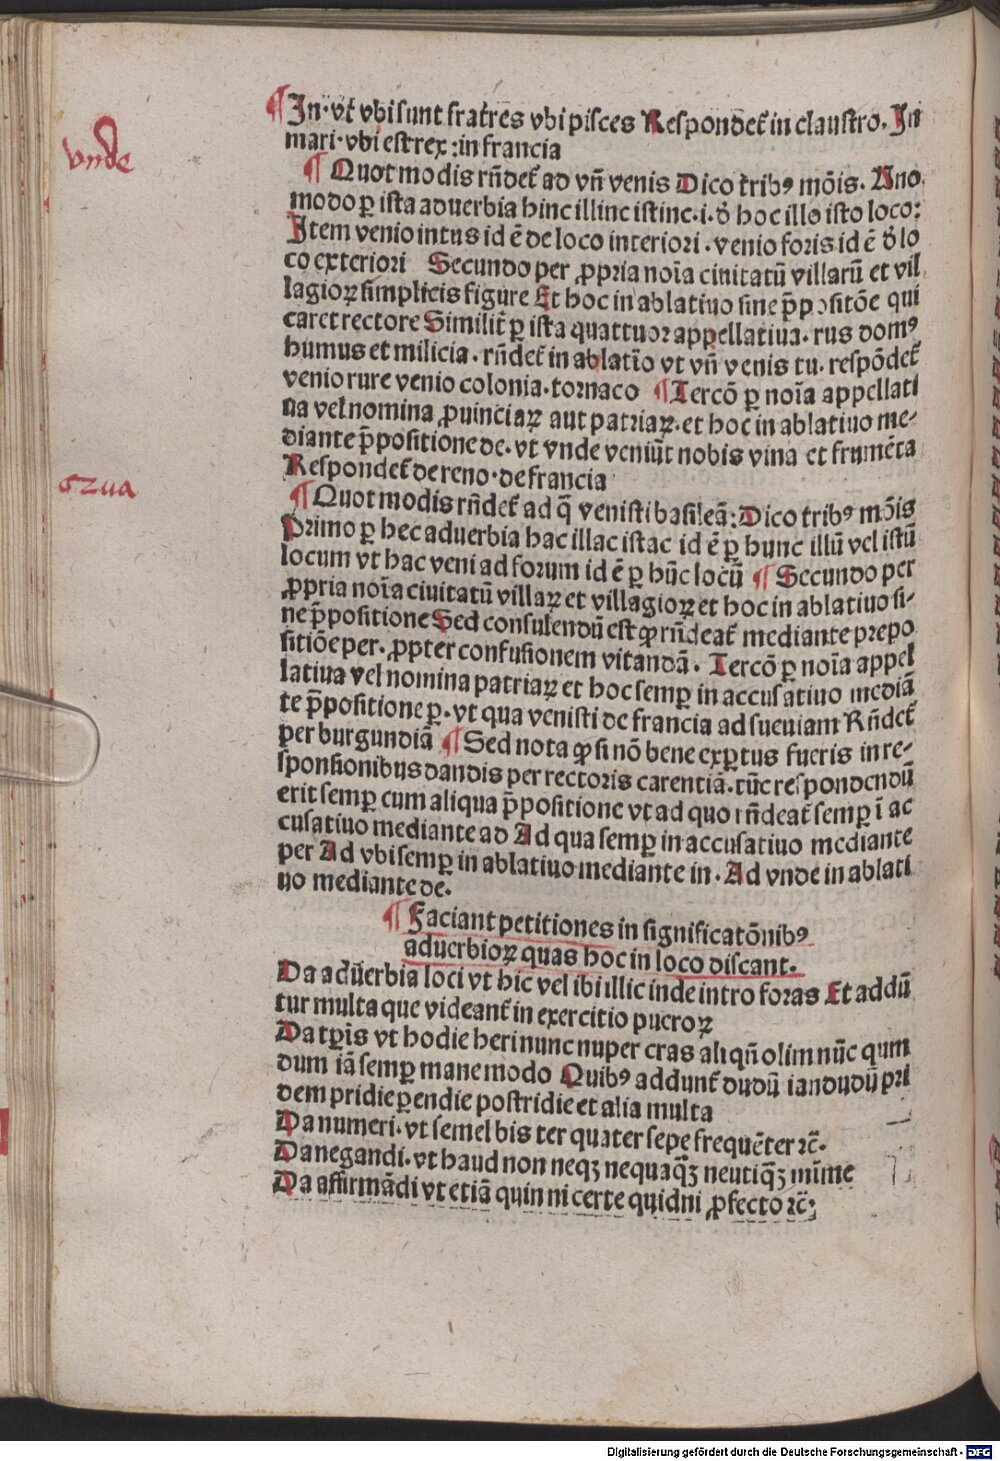 ¶ In· vt vbi sunt fratres vbi pisces Respondet̄ in claustro. In
mari· vbi est rex : in francia
vnde
¶ Quot modis rn̄det̄ ad vn̄ venis Dico tribꝰ mōis. Vno
modo ꝑ ista aduerbia hinc illinc istinc·i·ď hoc illo isto loco:
Item venio intus id ē de loco interiori · venio foris id ē ď lo
co exteriori Secundo per ꝓpria noīa ciuitatū villarū et vil
lagioꝝ simplicis figure Et hoc in ablatiuo sine p̄positōe qui
caret rectore Similit̄ ꝑ ista quattuor appellatiua· rus domꝰ
humus et milicia· rn̄det̄ in ablatīo vt vn̄ venis tu. respōdet̄
venio rure venio colonia· tornaco ¶ Tercō ꝑ noīa appellati
ua vel nomina ꝓuinciaꝝ aut patriaꝝ· et hoc in ablatiuo me-
diante p̄positione de· vt vnde veniūt nobis vina et frumēta
Respondet̄ de reno· de francia
qua
¶ Quot modis rn̄det̄ ad q̄ venisti basileā: Dico tribꝰ mōis
Primo ꝑ hec aduerbia hac illac istac id ē ꝑ hunc illū vel istū
locum vt hac veni ad forum id ē ꝑ hūc locū ¶ Secundo per
ꝓpria noīa ciuitatū villaꝝ et villagioꝝ et hoc in ablatiuo si-
ne p̄positione Sed consulendū est ꝙ rn̄deat̄ mediante prepo
sitiōe per· ꝓpter confusionem vitandā. Tercō ꝑ noīa appel
latiua vel nomina patriaꝝ et hoc semꝑ in accusatiuo mediā
te p̄positione ꝑ· vt qua venisti de francia ad sueuiam Rn̄det̄
per burgundiā ¶ Sed nota ꝙ si nō bene exꝑtus fueris in re-
sponsionibus dandis per rectoris carentiā· tūc respondendū
erit semꝑ cum aliqua p̄positione vt ad quo rn̄deat̄ semꝑ ī ac
cusatiuo mediante ad Ad qua semꝑ in accusatiuo mediante
per Ad vbi semꝑ in ablatiuo mediante in · Ad vnde in ablati
uo mediante de.
¶ Faciant petitiones in significatōnibꝰ
aduerbioꝝ quas hoc in loco discant.
Da aduerbia loci vt hic vel ibi illic inde intro foras Et addū
tur multa que videant̄ in exercitio pueroꝝ
Da tꝑis vt hodie heri nunc nuper cras aliqn̄ olim nūc qum
dum iā semꝑ mane modo Quibꝰ addunt̄ dudū iandudū pri
dem pridie ꝑendie postridie et alia multa
Da numeri· vt semel bis ter quater sepe frequēter ꝛc̄·
Da negandi· vt haud non neqꝫ nequaq̄ꝫ neutiq̄ꝫ mīme
Da affirmādi vt etiā quin ni certe quidni ꝓfecto ꝛc̄;
Digitalisierung gefördert durch die Deutsche Forschungsgemeinschaft - DFG